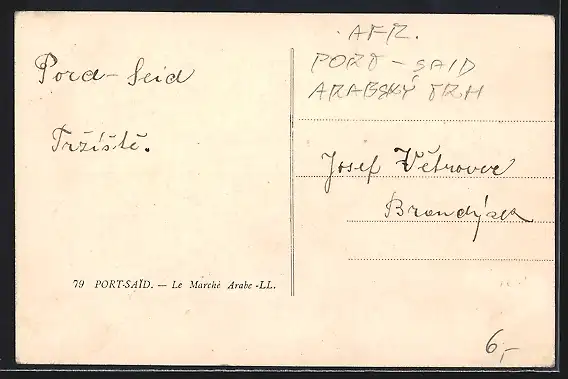 Pord-Seid
Tržiště.
79 PORT-SAÏD. — Le Marché Arabe -LL.
AFR.
PORT-SAID
ARABSKÝ TRH
Josef Větrovec
Brandýsek
6,-